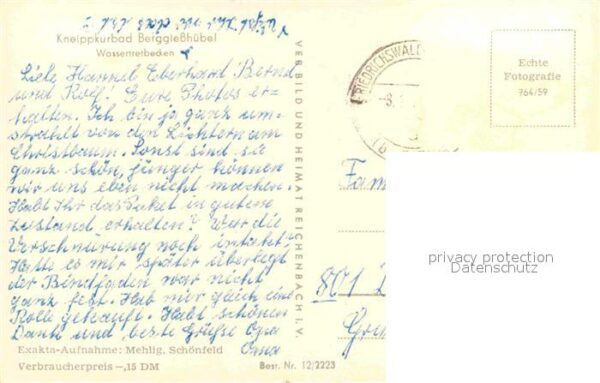 Kneippkurbad Berggießhübel
Wassertretbecken
Liebe Hannel Eberhard Bernd
und Rolf! Eure Photos er-
halten. Ich bin ja ganz um-
strahlt von den Lichtern am
Christbaum. Sonst sind sie
ganz schön, jünger können
wir uns eben nicht machen.
Habt Ihr das Paket in gutem
Zustand erhalten? War die
Verschnürung noch intakt?
Hatte es mir später überlegt
der Bindfaden war nicht
ganz fest. Hab mir gleich eine
Rolle gekauft. Habt schönen
Dank und beste Grüße Opa
Oma
Exakta-Aufnahme: Mehlig, Schönfeld
Verbraucherpreis -,15 DM
Best. Nr. 12/2223
VEB BILD UND HEIMAT REICHENBACH I.V.
FRIEDRICHSWAL
Echte
Fotografie
764/59
Fam
801
privacy protection
Datenschutz